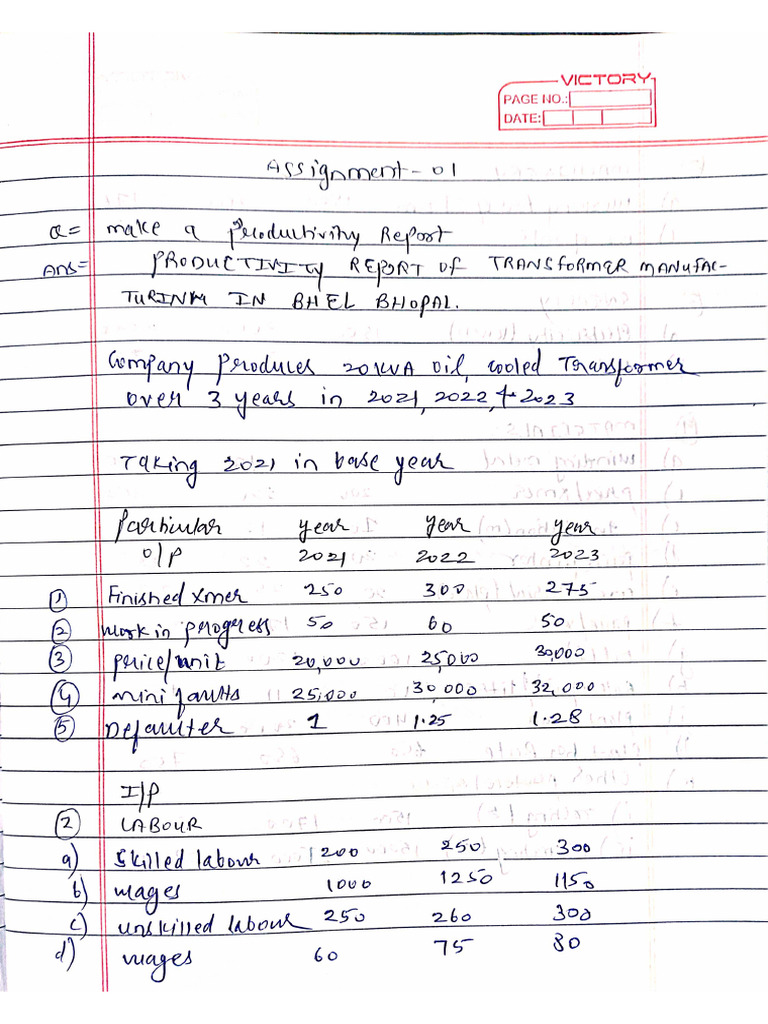 VICTORY
PAGE NO.:
DATE:
Assignment-01
Q= make a Productivity Report
Ans= PRODUCTIVITY REPORT of TRANSFORMER MANUFAC-
TURING IN BHEL BHOPAL.
Company Produces 20KVA Oil, cooled Transformer
over 3 years in 2021, 2022, + 2023
Taking 2021 in base year
Particular year year year
O/P 2021 2022 2023
① Finished Xmer 250 300 275
② work in progress 50 60 50
③ price/unit 20,000 25,000 30,000
④ mini faults 25,000 30,000 32,000
⑤ Deflauter 1 1.25 1.28
I/P
② LABOUR
a) Skilled labour 200 250 300
b) wages 1000 1250 1150
c) unskilled labour 250 260 300
d) wages 60 75 80